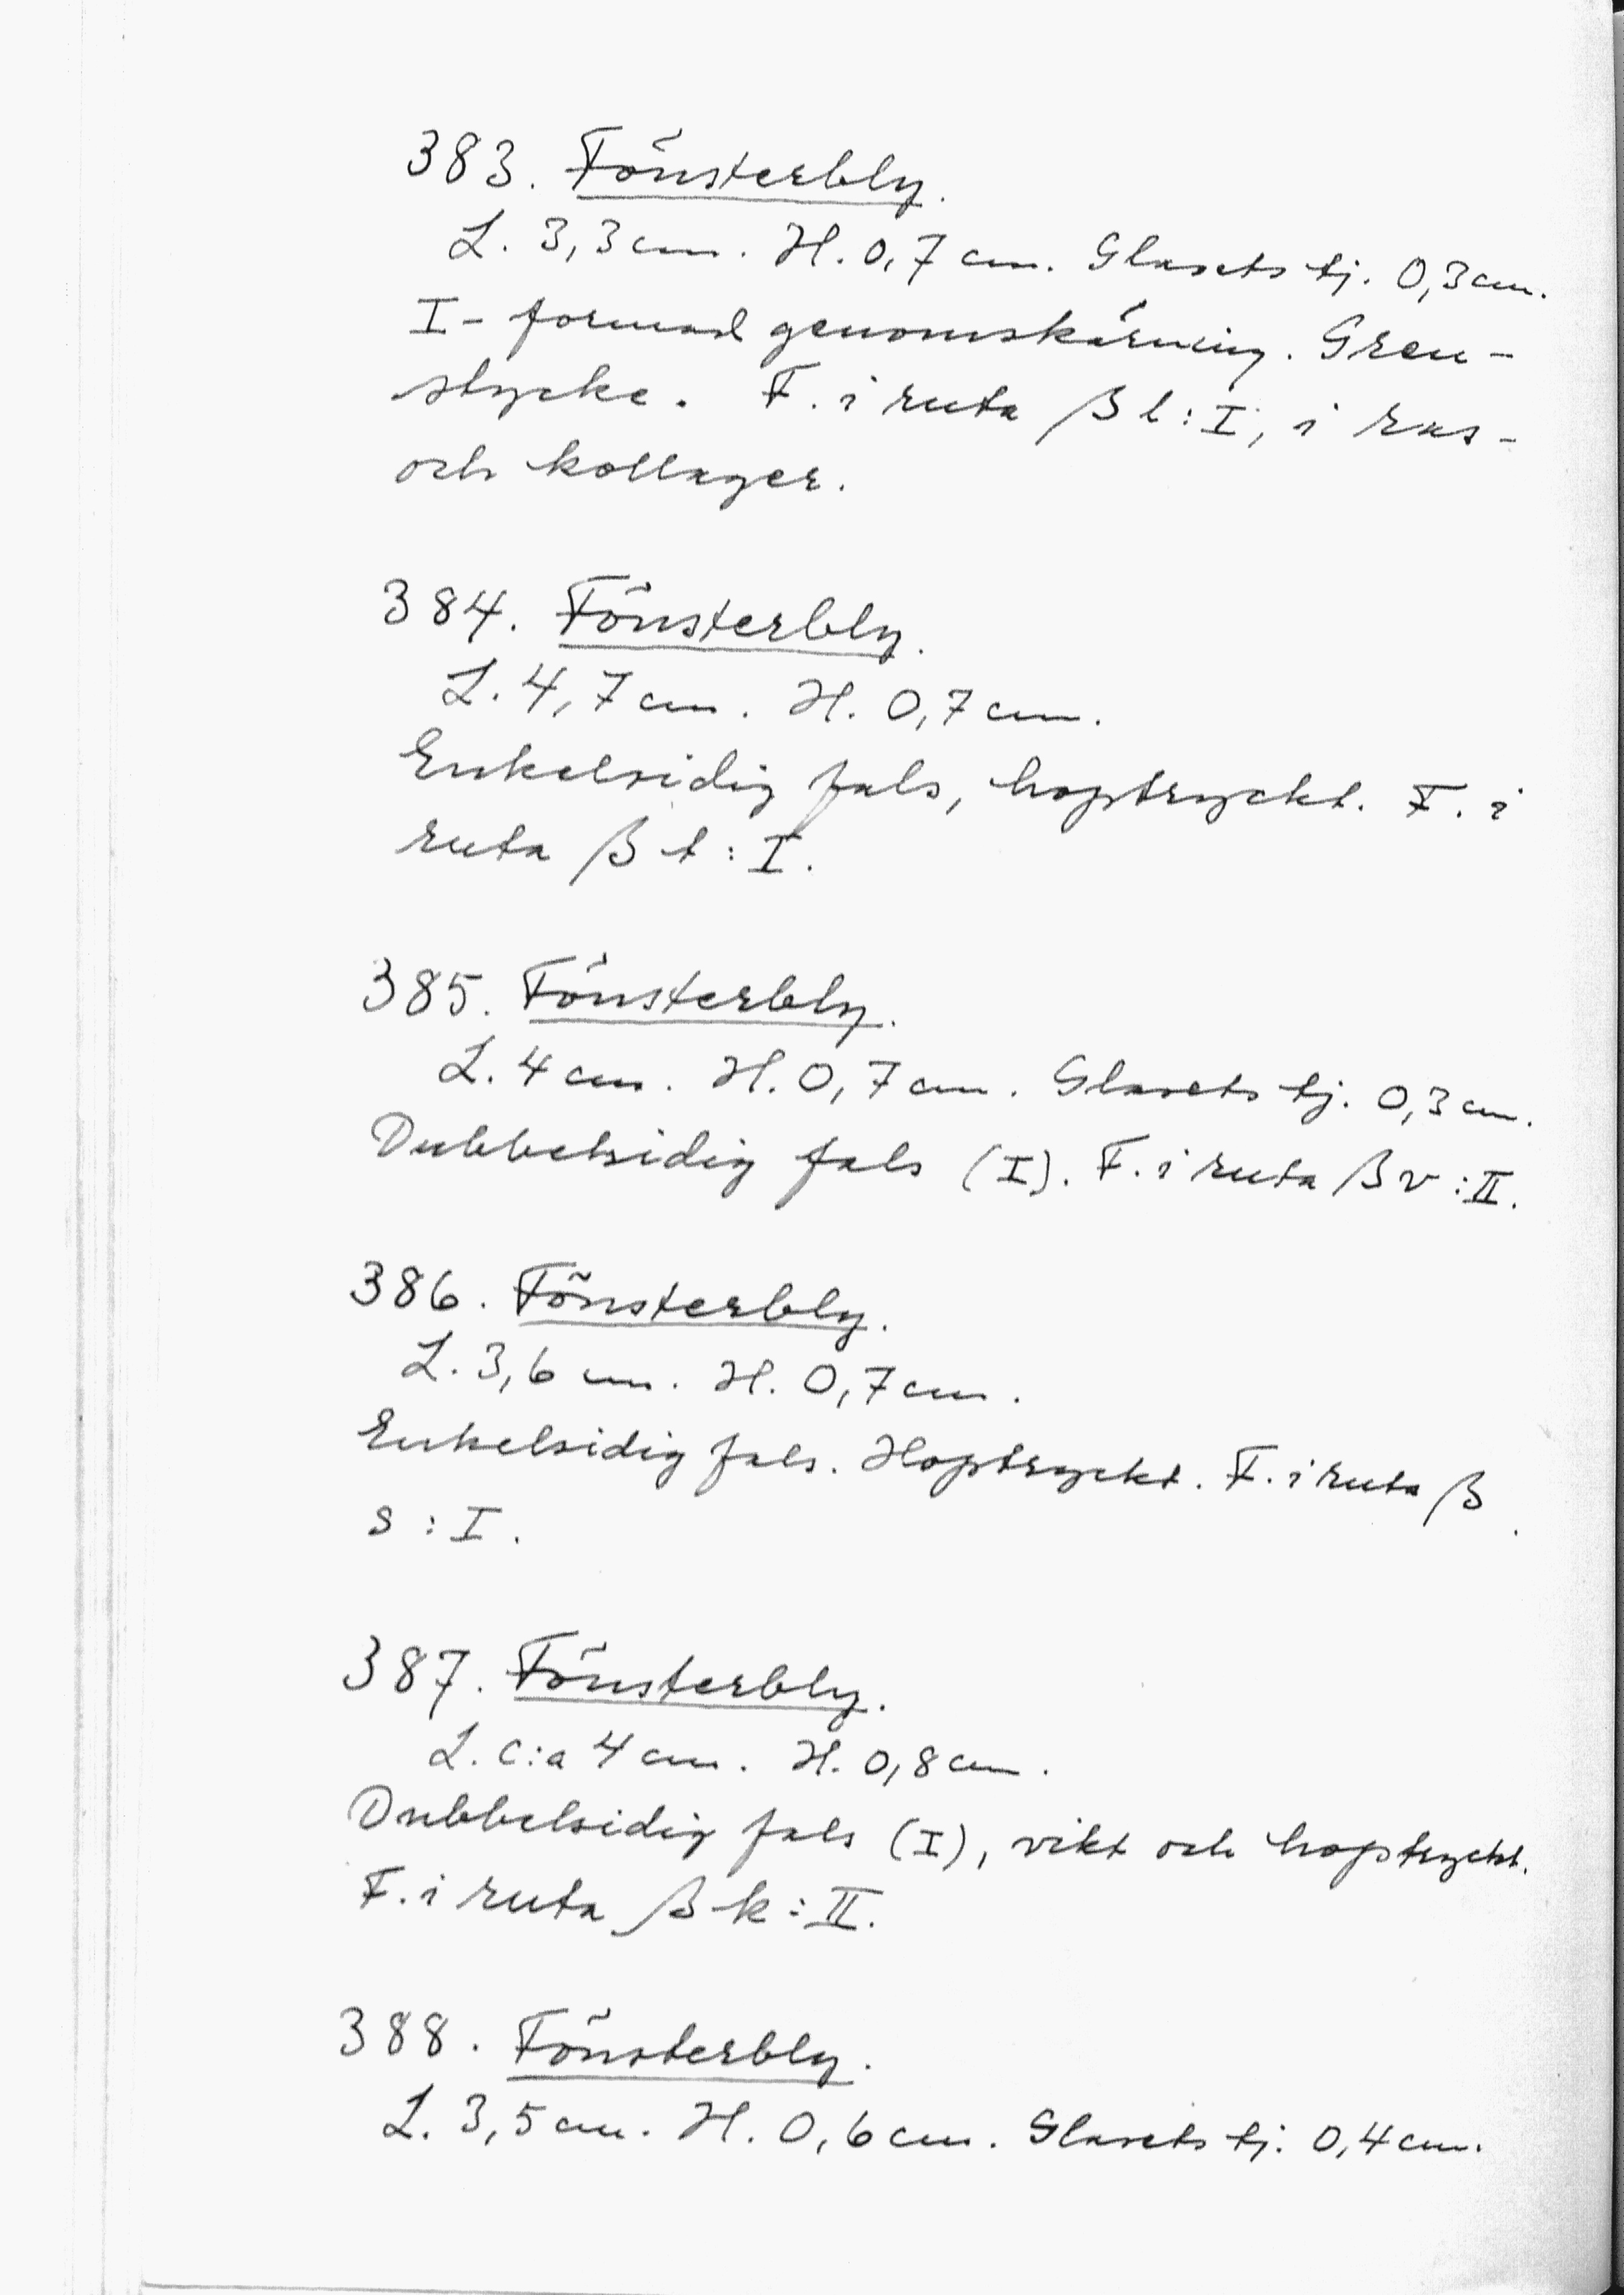 383. Fönsterbly.
L. 3,3 cm. H. 0,7 cm. Glasets tj. 0,3 cm.
I-formad genomskärning. Gren-
stycke. F. i ruta β l:I, i ras-
och kollager.
384. Fönsterbly.
L. 4,7 cm. H. 0,7 cm.
Enkelsidig fals, hoptryckt. F. i
ruta β t:I.
385. Fönsterbly.
L. 4 cm. H. 0,7 cm. Glasets tj. 0,3 cm.
Dubbelsidig fals (I). F. i ruta β v:II.
386. Fönsterbly.
L. 3,6 cm. H. 0,7 cm.
Enkelsidig fals. Hoptryckt. F. i ruta β
s:I.
387. Fönsterbly.
L. c:a 4 cm. H. 0,8 cm.
Dubbelsidig fals (I), vikt och hoptryckt.
F. i ruta β k:II.
388. Fönsterbly.
L. 3,5 cm. H. 0,6 cm. Glasets tj. 0,4 cm.